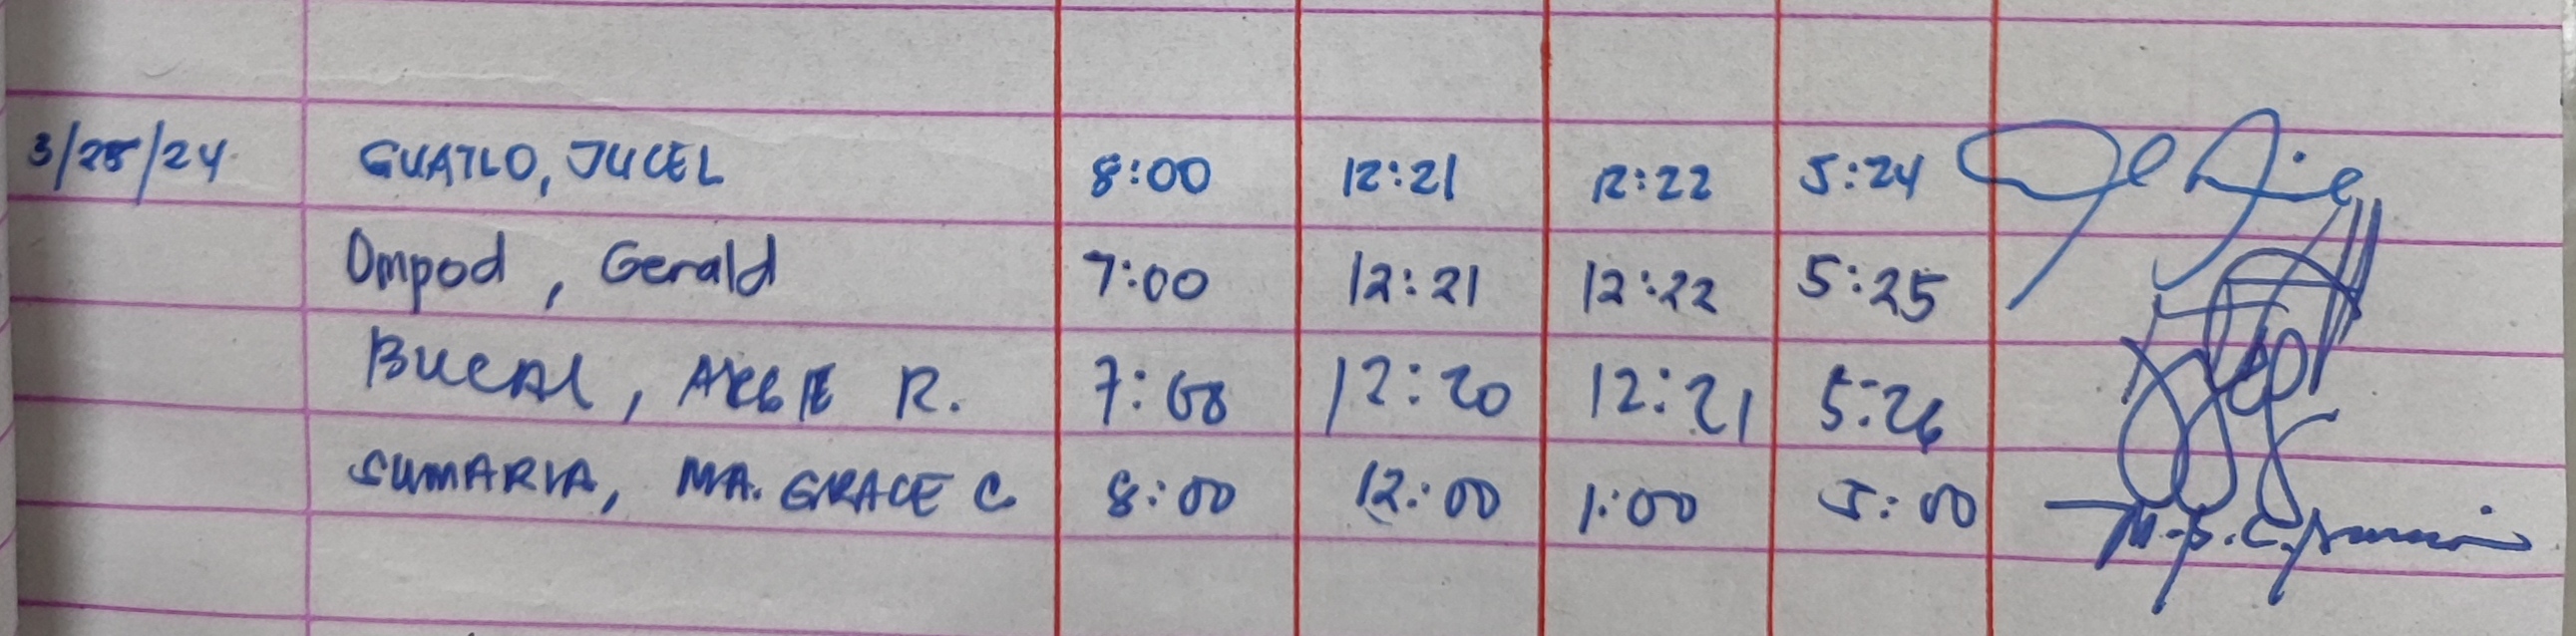 3/25/24 GUATLO, JUCEL 8:00 12:21 12:22 5:24
Ompod, Gerald 7:00 12:21 12:22 5:25
BUCAL, R. 7:08 12:20 12:21 5:26
SUMARIA, MA. GRACE C. 8:00 12:00 1:00 5:00